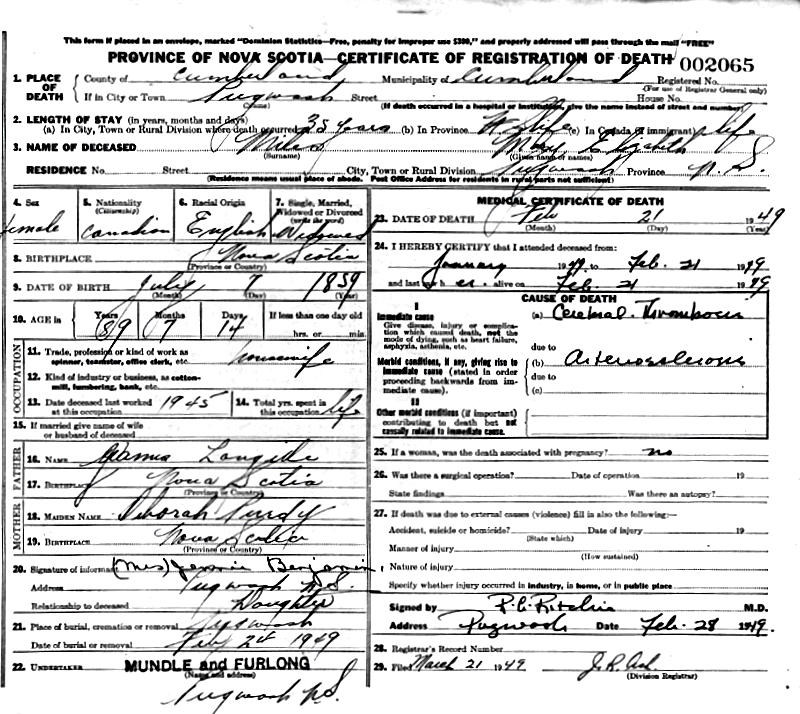 This form if placed in an envelope, marked "Dominion Statistics—Free, penalty for improper use $300," and properly addressed will pass through the mail "FREE"
PROVINCE OF NOVA SCOTIA—CERTIFICATE OF REGISTRATION OF DEATH 002065
1. PLACE OF DEATH
County of Cumberland Municipality of Cumberland Registered No.
(For use of Registrar General only)
If in City or Town Pugwash Street House No.
(Name) (If death occurred in a hospital or institution, give the name instead of street and number)
2. LENGTH OF STAY (in years, months and days)
(a) In City, Town or Rural Division where death occurred 35 years (b) In Province life (c) In Canada (if immigrant) life
3. NAME OF DECEASED Mills Mary Elizabeth
(Surname) (Given name or names)
RESIDENCE No. Street City, Town or Rural Division Pugwash Province N.S.
(Residence means usual place of abode. Post Office Address for residents in rural parts not sufficient)
4. Sex female
5. Nationality (Citizenship) Canadian
6. Racial Origin English
7. Single, Married, Widowed or Divorced (write the word) Widowed
8. BIRTHPLACE Nova Scotia
(Province or Country)
9. DATE OF BIRTH July 7 1859
(Month) (Day) (Year)
10. AGE in Years 89 Months 7 Days 14 If less than one day old hrs. or min.
OCCUPATION
11. Trade, profession or kind of work as spinner, teamster, office clerk, etc. housewife
12. Kind of industry or business, as cotton-mill, lumbering, bank, etc.
13. Date deceased last worked at this occupation 1945
14. Total yrs. spent in this occupation life
15. If married give name of wife or husband of deceased
FATHER
16. NAME James
17. BIRTHPLACE Nova Scotia
(Province or Country)
MOTHER
18. MAIDEN NAME Deborah Purdy
19. BIRTHPLACE Nova Scotia
(Province or Country)
20. Signature of informant (Mrs) Jennie Benjamin
Address Pugwash N.S.
Relationship to deceased Daughter
21. Place of burial, cremation or removal Pugwash
Date of burial or removal Feb 1949
22. UNDERTAKER MUNDLE and FURLONG
(Name and address)
Pugwash N.S.
MEDICAL CERTIFICATE OF DEATH
23. DATE OF DEATH Feb 21 1949
(Month) (Day) (Year)
24. I HEREBY CERTIFY that I attended deceased from:
January 1949 to Feb. 21 1949
and last saw her alive on Feb. 21 1949
CAUSE OF DEATH
I
Immediate cause
Give disease, injury or complication which caused death, not the mode of dying, such as heart failure, asphyxia, asthenia, etc.
(a) Cerebral Thrombosis
due to
Morbid conditions, if any, giving rise to immediate cause (stated in order proceeding backwards from immediate cause).
(b) Arteriosclerosis
due to
(c)
II
Other morbid conditions (if important) contributing to death but not causally related to immediate cause.
25. If a woman, was the death associated with pregnancy? no
26. Was there a surgical operation? Date of operation 19
State findings Was there an autopsy?
27. If death was due to external causes (violence) fill in also the following:—
Accident, suicide or homicide? Date of injury 19
(State which)
Manner of injury
(How sustained)
Nature of injury
Specify whether injury occurred in industry, in home, or in public place
Signed by P.E. Ritchie M.D.
Address Pugwash Date Feb. 28 1949.
28. Registrar's Record Number
29. Filed March 21 1949 J.R.
(Division Registrar)